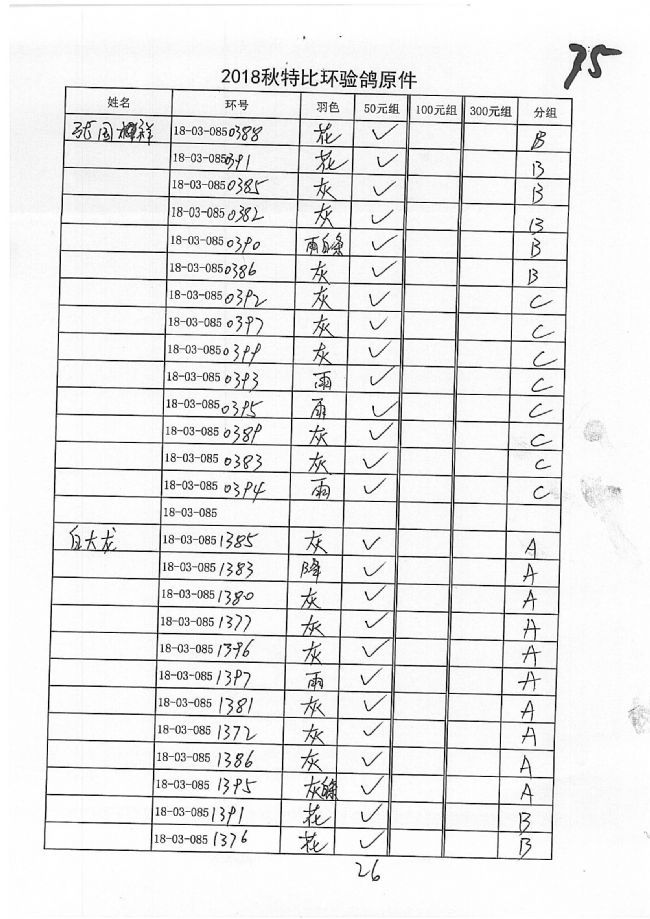 75
2018秋特比环验鸽原件
姓名 环号 羽色 50元组 100元组 300元组 分组
张国祥 18-03-0850388 花 ✓ B
18-03-0850391 花 ✓ B
18-03-0850385 灰 ✓ B
18-03-0850382 灰 ✓ B
18-03-0850390 雨白条 ✓ B
18-03-0850386 灰 ✓ B
18-03-0850392 灰 ✓ C
18-03-0850397 灰 ✓ C
18-03-0850399 灰 ✓ C
18-03-0850393 雨 ✓ C
18-03-0850395 雨 ✓ C
18-03-0850389 灰 ✓ C
18-03-0850383 灰 ✓ C
18-03-0850394 雨 ✓ C
18-03-085
白大龙 18-03-0851385 灰 ✓ A
18-03-0851383 降 ✓ A
18-03-0851380 灰 ✓ A
18-03-0851377 灰 ✓ A
18-03-0851396 灰 ✓ A
18-03-0851397 雨 ✓ A
18-03-0851381 灰 ✓ A
18-03-0851372 灰 ✓ A
18-03-0851386 灰 ✓ A
18-03-0851395 灰白条 ✓ A
18-03-0851391 花 ✓ B
18-03-0851376 花 ✓ B
26